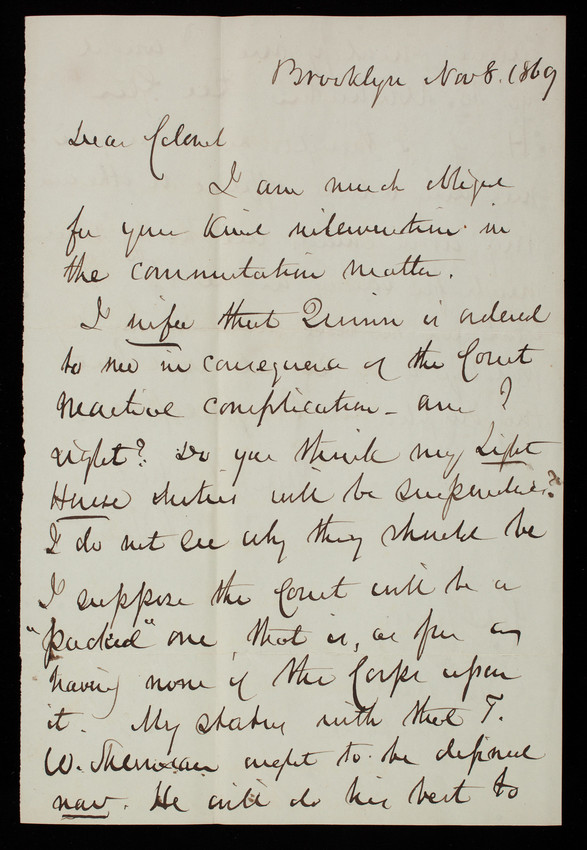 Brooklyn Nov 8. 1869
Dear Colonel
I am much obliged
for your kind intervention in
the commutation matter.
I infer that Quinn is ordered
to me in consequence of the Court
Martial complication - am I
right? Do you think my Light
House duties will be suspended?
I do not see why they should be
I suppose the Court will be a
"packed" one, that is, as far as
having none of the Corps upon
it. My status with that T.
W. Sherman ought to be defined
now. He will do his best to